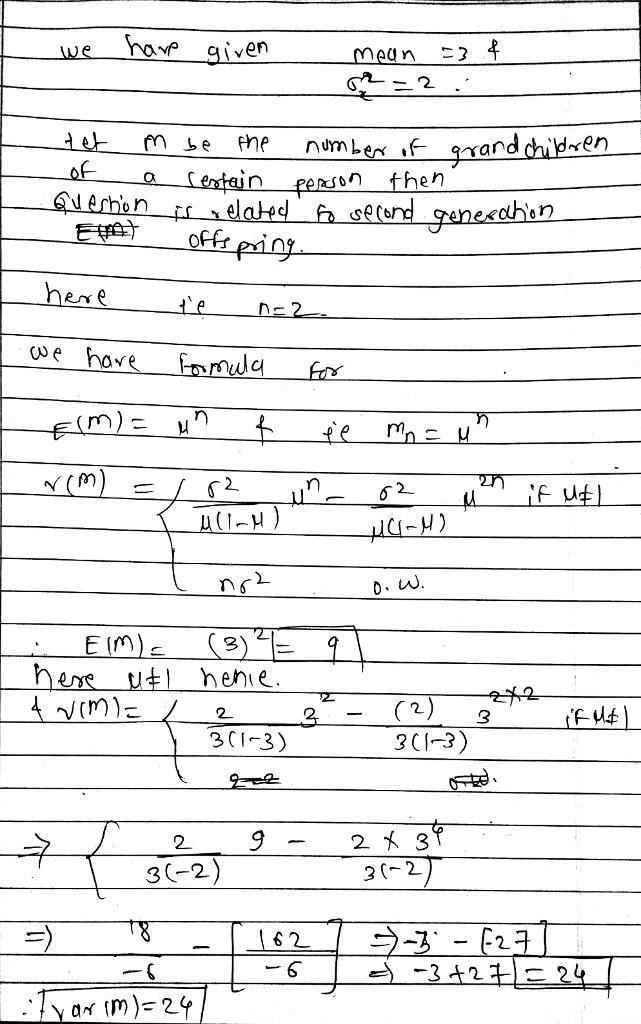 we have given mean = 3 &
σx² = 2 .
let m be the number of grand children
of a certain person then
Question is related to second generation
E(m) offspring.
here i'e n=2
we have formula for
E(m) = μⁿ & i'e mₙ = μⁿ
v(m) = { σ²/μ(1-μ) μⁿ - σ²/μ(1-μ) μ²ⁿ if μ≠1
nσ² o.w.
∴ E(m) = (3)² = 9
here μ≠1 hence.
& v(m) = { 2/3(1-3) 3² - (2)/3(1-3) 3^2×2 if μ≠1
⇒ { 2/3(-2) 9 - 2 × 3⁴/3(-2)
⇒ 18/-6 - [162/-6] ⇒ -3 - [-27]
⇒ -3 + 27 = 24
∴ var(m) = 24